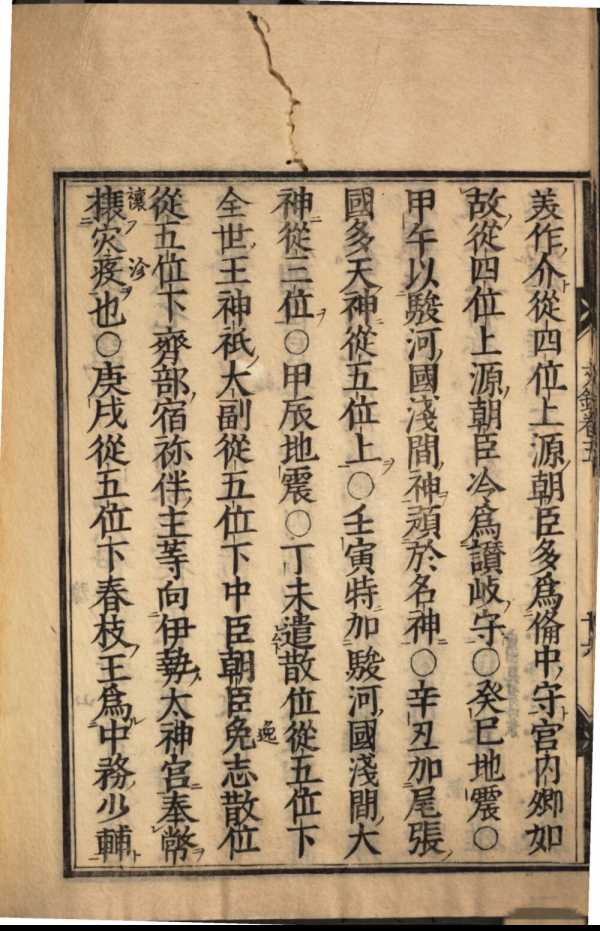 美作介從四位上源朝臣多爲俻中守宮内卿如
故從四位上源朝臣冷爲讃岐守○癸巳地震○
甲午以駿河國淺間神預於名神○辛丑加尾張
國多天神從五位上○壬寅特加駿河國淺間大
神從三位○甲辰地震○丁未遣散位從五位下
全世王神祇大副從五位下中臣朝臣免志散位
逸
從五位下齊部宿祢伴主等向伊勢太神宮奉幣
攘灾疫也○庚戌從五位下春枝王爲中務少輔
禳
沴